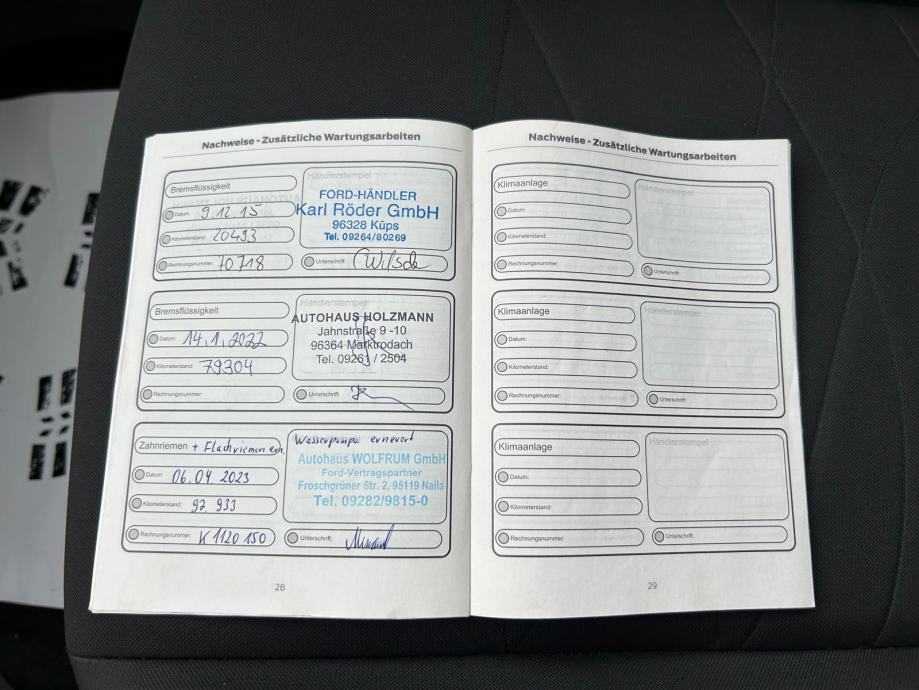 Nachweise - Zusätzliche Wartungsarbeiten
Bremsflüssigkeit
Händlerstempel
Datum: 9.12.15
Kilometerstand: 20493
Rechnungsnummer: 70718
FORD-HÄNDLER
Karl Röder GmbH
96328 Küps
Tel. 09264/80269
Unterschrift:
Bremsflüssigkeit
Händlerstempel
Datum: 14.1.2022
Kilometerstand: 79304
Rechnungsnummer:
AUTOHAUS HOLZMANN
Jahnstraße 9 -10
96364 Marktrodach
Tel. 09261 / 2504
Unterschrift:
Zahnriemen + Flachriemen ern.
Wasserpumpe erneuert
Datum: 06.04.2023
Kilometerstand: 92 933
Rechnungsnummer: K1120 150
Autohaus WOLFRUM GmbH
Ford-Vertragspartner
Froschgrüner Str. 2, 95119 Naila
Tel. 09282/9815-0
Unterschrift:
28
Nachweise - Zusätzliche Wartungsarbeiten
Klimaanlage
Händlerstempel
Datum:
Kilometerstand:
Rechnungsnummer:
Unterschrift:
Klimaanlage
Händlerstempel
Datum:
Kilometerstand:
Rechnungsnummer:
Unterschrift:
Klimaanlage
Händlerstempel
Datum:
Kilometerstand:
Rechnungsnummer:
Unterschrift:
29